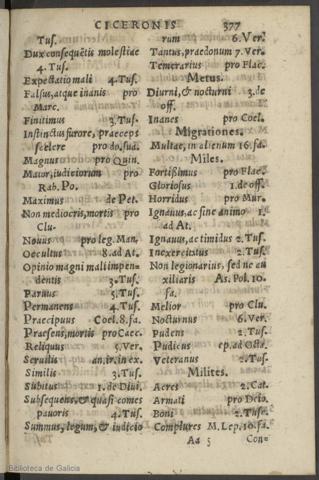 CICERONIS 377
Tus.
Dux consequẽtis molestiae
4. Tus.
Expectatio mali 4. Tus.
Falsus, atque inanis pro
Marc.
Finitimus 3. Tus.
Instinctus furore, praeceps
scelere pro do. sua.
Magnus pro Quin.
Maior, iudiciorum pro
Rab. Po.
Maximus de Pet.
Non mediocris, mortis pro
Clu-
Nouus pro leg. Man.
Occultus 8. ad At.
Opinio magni mali impen-
dentis 3. Tus.
Paruus 5. Tus.
Permanens 4. Tus.
Praecipuus Coel. 8. fa.
Praesens, mortis pro Caec.
Reliquus 5. Ver.
Seruilis an. ir. in ex.
Similis 3. Tus.
Subitus 1. de Diui.
Subsequens, & quasi comes
pauoris 4. Tus.
Summus, legum, & iudicio
rum 6. Ver.
Tantus, praedonum 7. Ver.
Temerarius pro Flac.
Metus.
Diurni, & nocturni 3. de
off.
Inanes pro Coel.
Migrationes.
Multae, in alienum 16. fa.
Miles.
Fortissimus pro Flac.
Gloriosus 1. de off.
Horridus pro Mur.
Ignauus, ac sine animo 1.
ad At.
Ignauus, ac timidus 2. Tus.
Inexercitatus 2. Tus.
Non legionarius, sed ne au
xiliaris As. Pol. 10.
fa.
Melior pro Clu.
Nocturnus 6. Ver.
Pudens 2. Tus.
Pudicus ep. ad Octa.
Veteranus 2. Tus.
Milites.
Acres 2. Cat.
Armati pro Deio.
Boni 2. Tus.
Complures M. Lep. 10. fa.
Aa 5 Con-
Biblioteca de Galicia